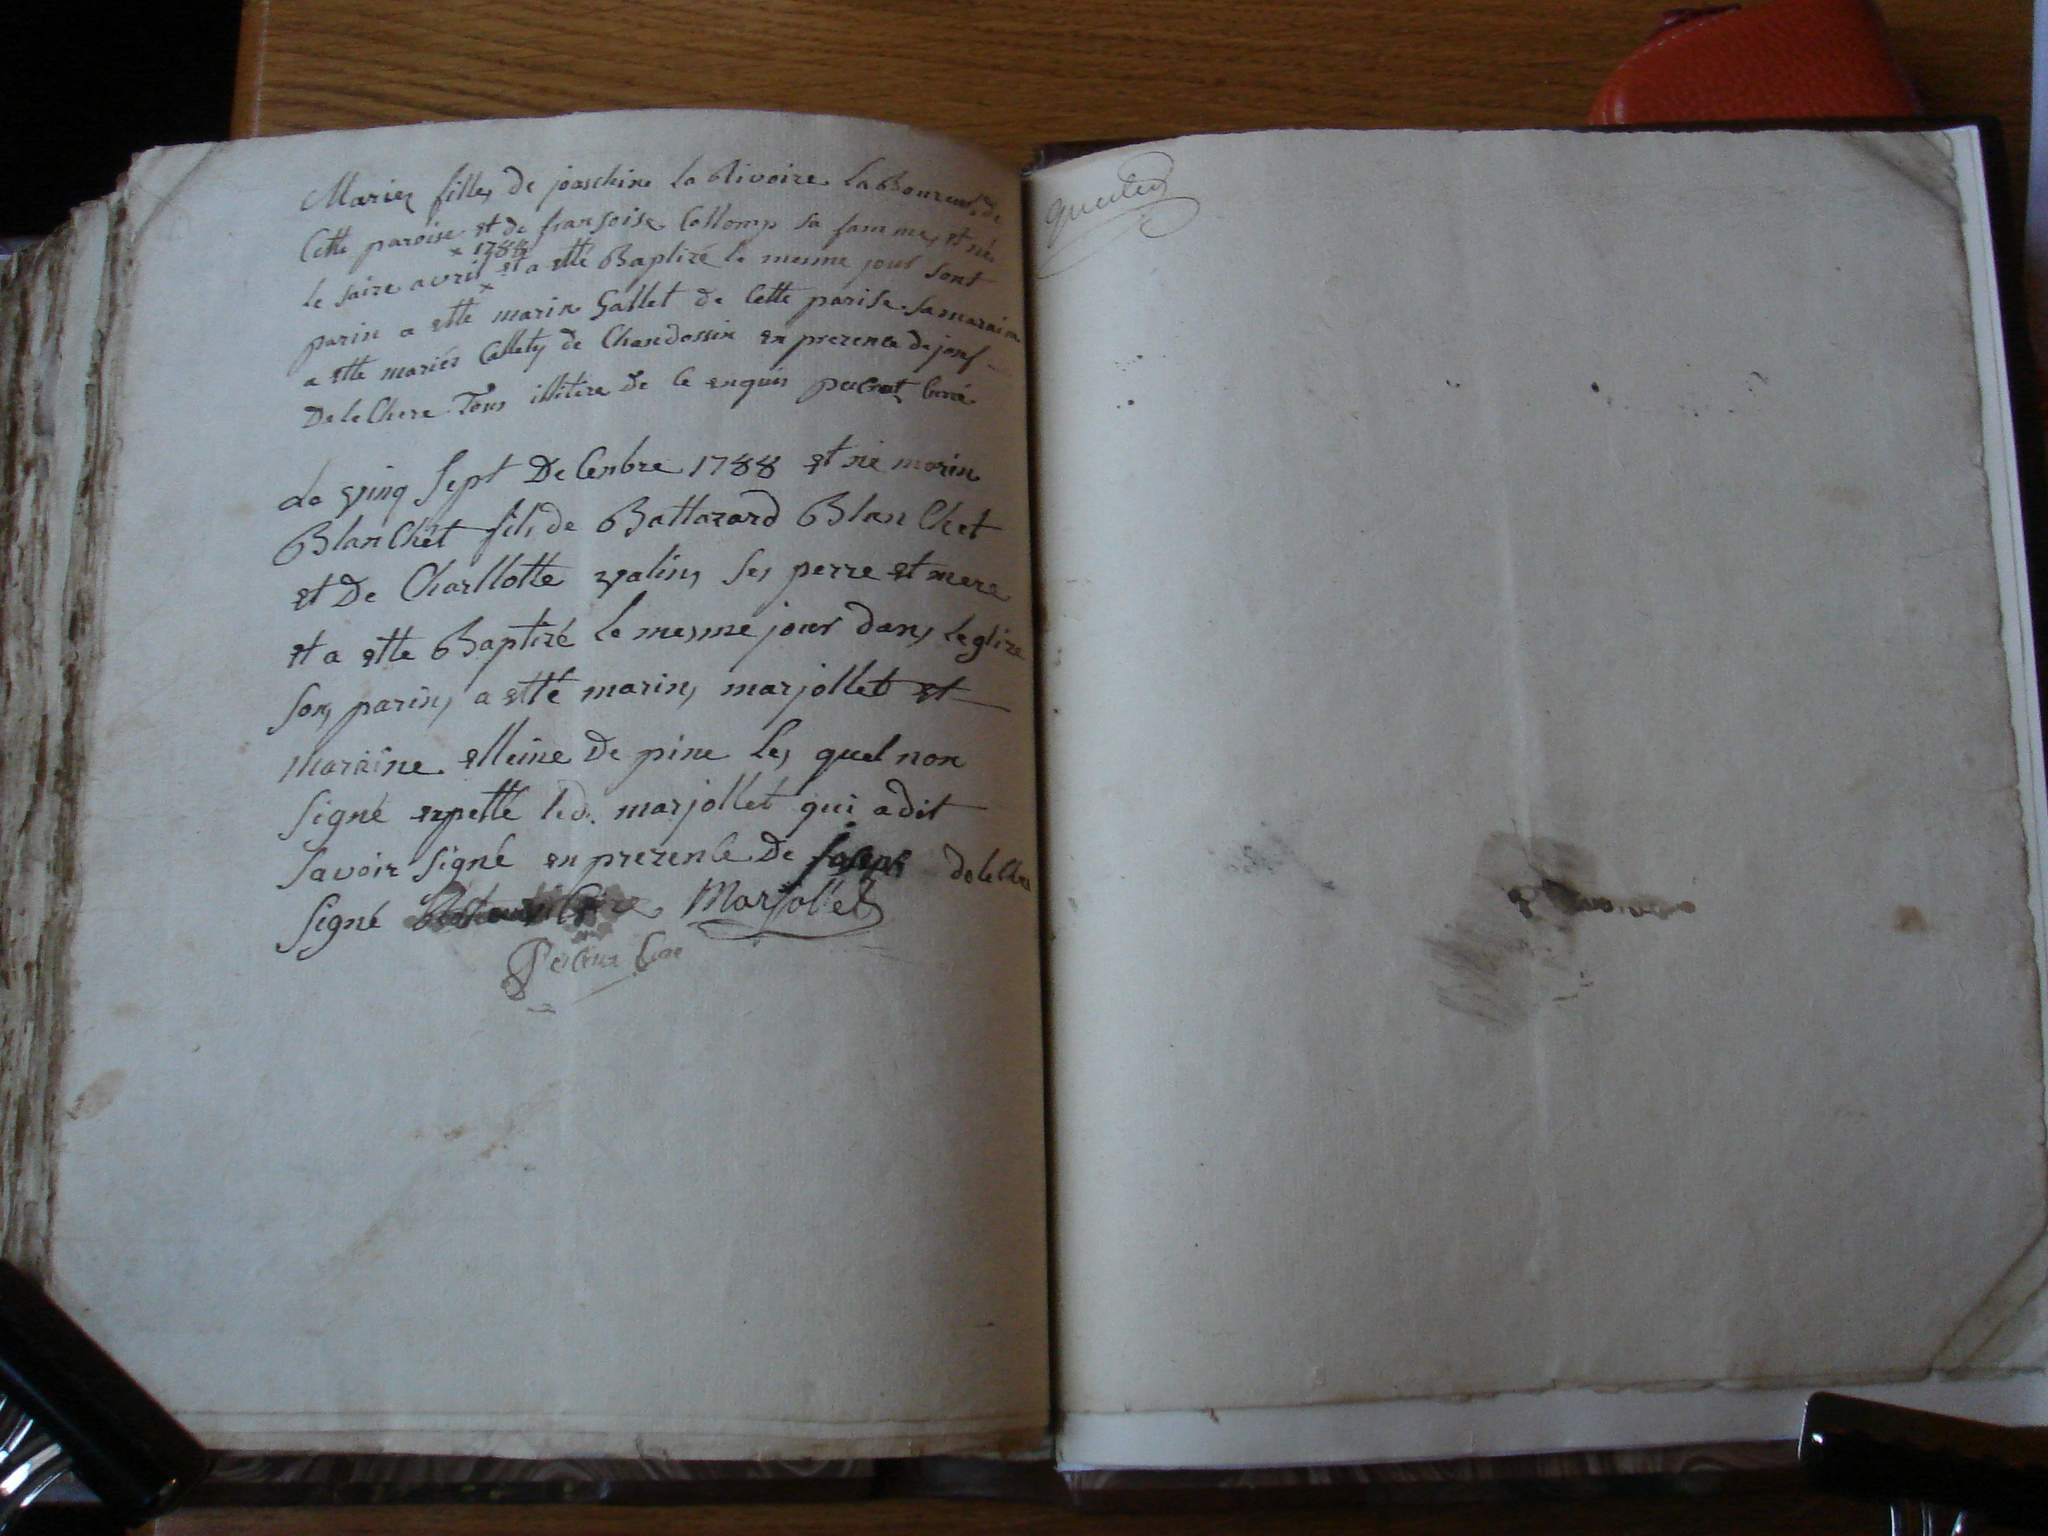 Marie fille de joaschin la Rivoire laBoureur de
Cette paroise et de fransoise Collomp sa famme et né
x 1788
le saire avril x et a ette Baptizé le mesme jour sont
parin a ette marin Gallet de Cette parise samaraine
a ette mariée Callet de Chandossin en prezence de josef
De le Chere Tous illitere de le enquis Curé
Le vinq sept DeCenbre 1788 et né marin
BlanChet fils de Battazard BlanChet
et De Charllotte valin ses perre et mere
et a ette Baptizé le mesme jour dans leglize
son parin a etté marin marjollet et
maraine elleine De pine les quel non
signé expette led. marjollet qui a dit
savoir signé en prezence De joseph de le Chere
signé Marjollet
Curé